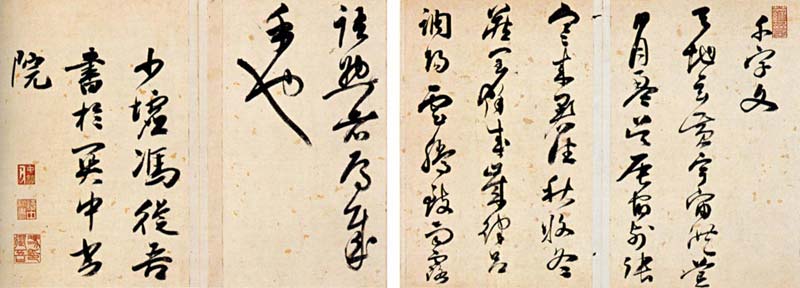 千字文
天地玄黃宇宙洪荒
日月盈昃辰宿列張
寒來暑往秋收冬
藏閏餘成歲律呂
調陽雲騰致雨露
語助者焉哉
乎也
少墟馮從吾
書於關中書
院